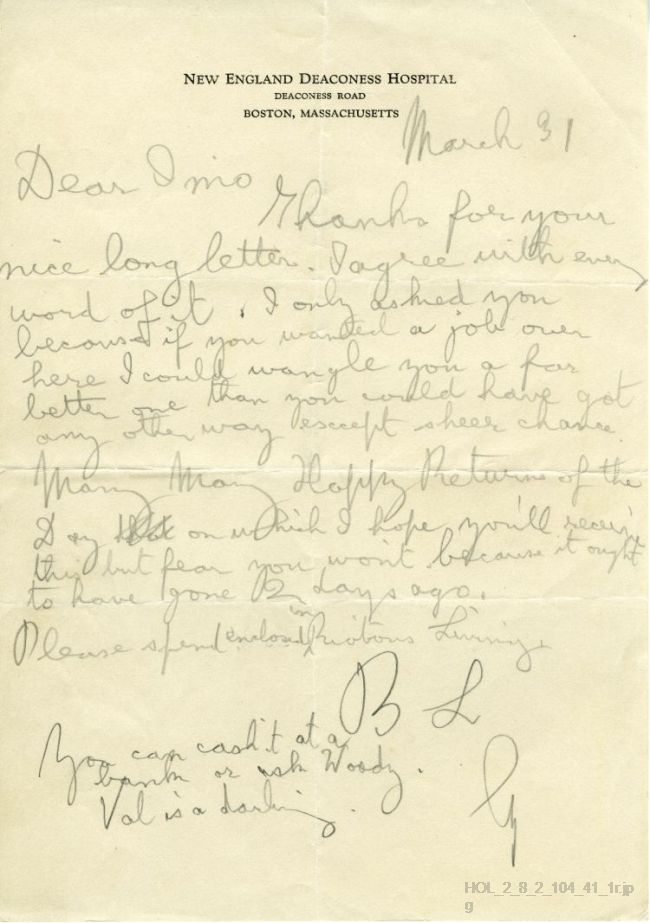 NEW ENGLAND DEACONESS HOSPITAL
DEACONESS ROAD
BOSTON, MASSACHUSETTS
March 31
Dear Imo
Thanks for your
nice long letter. I agree with every
word of it. I only asked you
because if you wanted a job over
here I could wangle you a far
better one than you could have got
any other way except sheer chance.
Many Many Happy Returns of the
Day on which I hope you'll receive
this but fear you won't because it ought
to have gone 2 days ago.
Please spend enclosed in Riotous Living.
B L
You can cash it at a
bank or ask Woody.
Val is a darling.
HOL_2_8_2_104_41_1r.jp
g